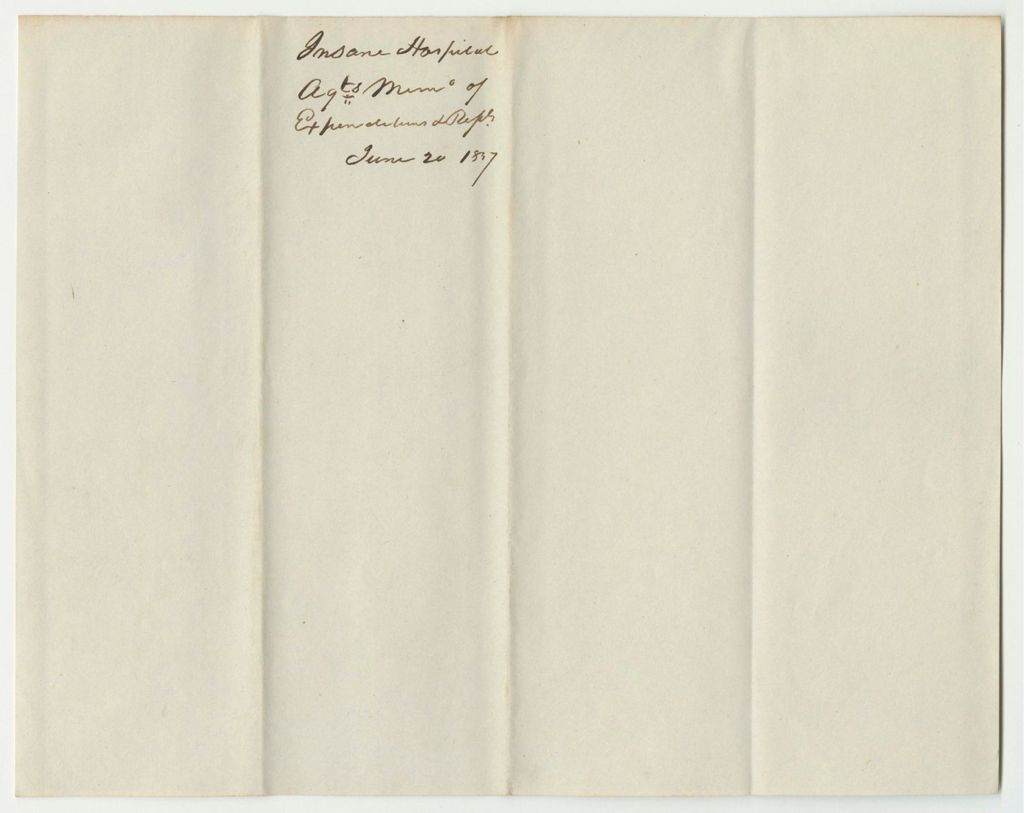 Insane Hospital
Agts Memo of
Expenditures & Repts
June 20 1837